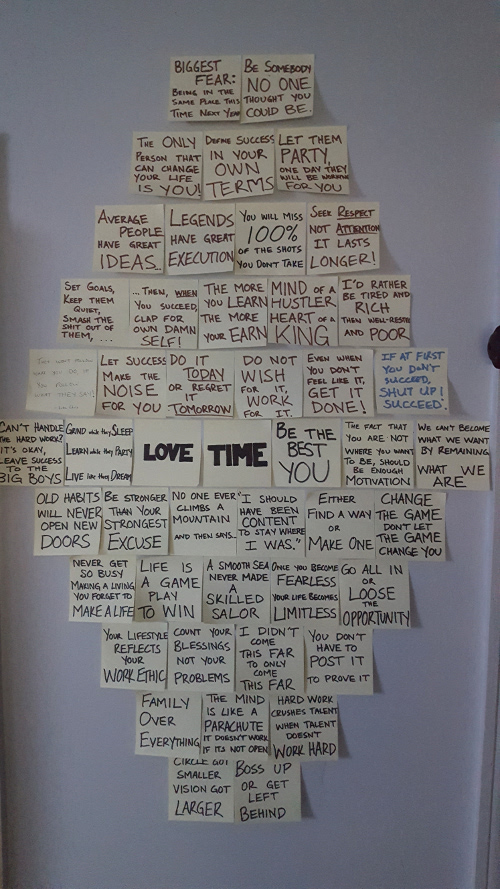 BIGGEST
FEAR:
BEING IN THE
SAME PLACE THIS
TIME NEXT YEAR
BE SOMEBODY
NO ONE
THOUGHT YOU
COULD BE.
THE ONLY
PERSON THAT
CAN CHANGE
YOUR LIFE
IS YOU!
DEFINE SUCCESS
IN YOUR
OWN
TERMS
LET THEM
PARTY,
ONE DAY THEY
WILL BE WORKING
FOR YOU
AVERAGE
PEOPLE
HAVE GREAT
IDEAS...
LEGENDS
HAVE GREAT
EXECUTION
YOU WILL MISS
100%
OF THE SHOTS
YOU DON'T TAKE
SEEK RESPECT
NOT ATTENTION
IT LASTS
LONGER!
SET GOALS,
KEEP THEM
QUIET,
SMASH THE
SHIT OUT OF
THEM, ...
... THEN, WHEN
YOU SUCCEED,
CLAP FOR
OWN DAMN
SELF!
THE MORE
YOU LEARN
THE MORE
YOUR EARN
MIND OF A
HUSTLER
HEART OF A
KING
I'D RATHER
BE TIRED AND
RICH
THEN WELL-RESTED
AND POOR
LET SUCCESS
MAKE THE
NOISE
FOR YOU
DO IT
TODAY
OR REGRET
IT
TOMORROW
DO NOT
WISH
FOR IT,
WORK
FOR IT.
EVEN WHEN
YOU DON'T
FEEL LIKE IT,
GET IT
DONE!
IF AT FIRST
YOU DON'T
SUCCEED,
SHUT UP!
SUCCEED.
CAN'T HANDLE
THE HARD WORK?
IT'S OKAY,
LEAVE SUCCESS
TO THE
BIG BOYS
GRIND while they SLEEP
LEARN while they PARTY
LIVE like they DREAM
LOVE
TIME
BE THE
BEST
YOU
THE FACT THAT
YOU ARE NOT
WHERE YOU WANT
TO BE, SHOULD
BE ENOUGH
MOTIVATION
WE CAN'T BECOME
WHAT WE WANT
BY REMAINING
WHAT WE
ARE
OLD HABITS
WILL NEVER
OPEN NEW
DOORS
BE STRONGER
THAN YOUR
STRONGEST
EXCUSE
NO ONE EVER
CLIMBS A
MOUNTAIN
AND THEN SAYS...
"I SHOULD
HAVE BEEN
CONTENT
TO STAY WHERE
I WAS."
EITHER
FIND A WAY
OR
MAKE ONE
CHANGE
THE GAME
DON'T LET
THE GAME
CHANGE YOU
NEVER GET
SO BUSY
MAKING A LIVING
YOU FORGET TO
MAKE A LIFE
LIFE IS
A GAME
PLAY
TO WIN
A SMOOTH SEA
NEVER MADE
A
SKILLED
SALOR
ONCE YOU BECOME
FEARLESS
YOUR LIFE BECOMES
LIMITLESS
GO ALL IN
OR
LOOSE
THE
OPPORTUNITY
YOUR LIFESTYLE
REFLECTS
YOUR
WORK ETHIC
COUNT YOUR
BLESSINGS
NOT YOUR
PROBLEMS
"I DIDN'T
COME
THIS FAR
TO ONLY
COME
THIS FAR
YOU DON'T
HAVE TO
POST IT
TO PROVE IT
FAMILY
OVER
EVERYTHING
THE MIND
IS LIKE A
PARACHUTE
IT DOESN'T WORK
IF ITS NOT OPEN
HARD WORK
CRUSHES TALENT
WHEN TALENT
DOESN'T
WORK HARD
CIRCLE GOT
SMALLER
VISION GOT
LARGER
BOSS UP
OR GET
LEFT
BEHIND